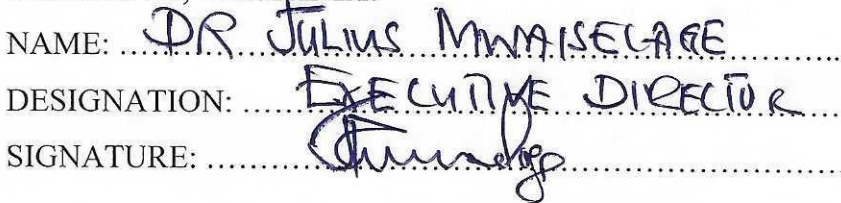 NAME: ...DR JULIUS MWAISELAGE...
DESIGNATION: .....EXECUTIVE DIRECTOR...
SIGNATURE: ........